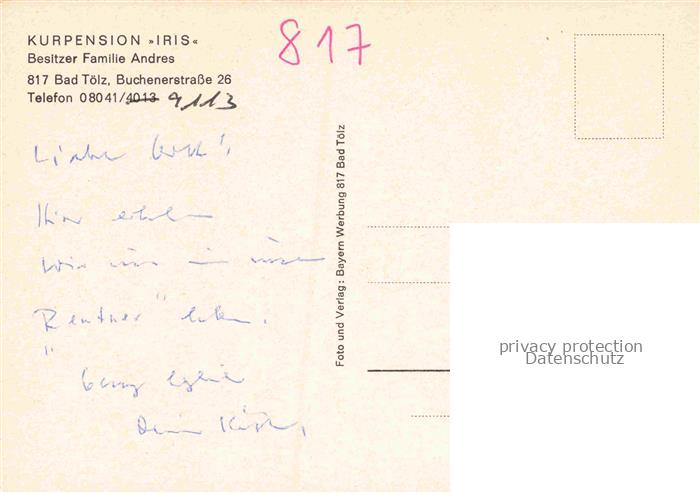 817
KURPENSION »IRIS«
Besitzer Familie Andres
817 Bad Tölz, Buchenerstraße 26
Telefon 08041/4013 9113
Lieber
Hier erholen
wir uns in
"Rentner"
Dein
Foto und Verlag: Bayern Werbung 817 Bad Tölz
privacy protection
Datenschutz